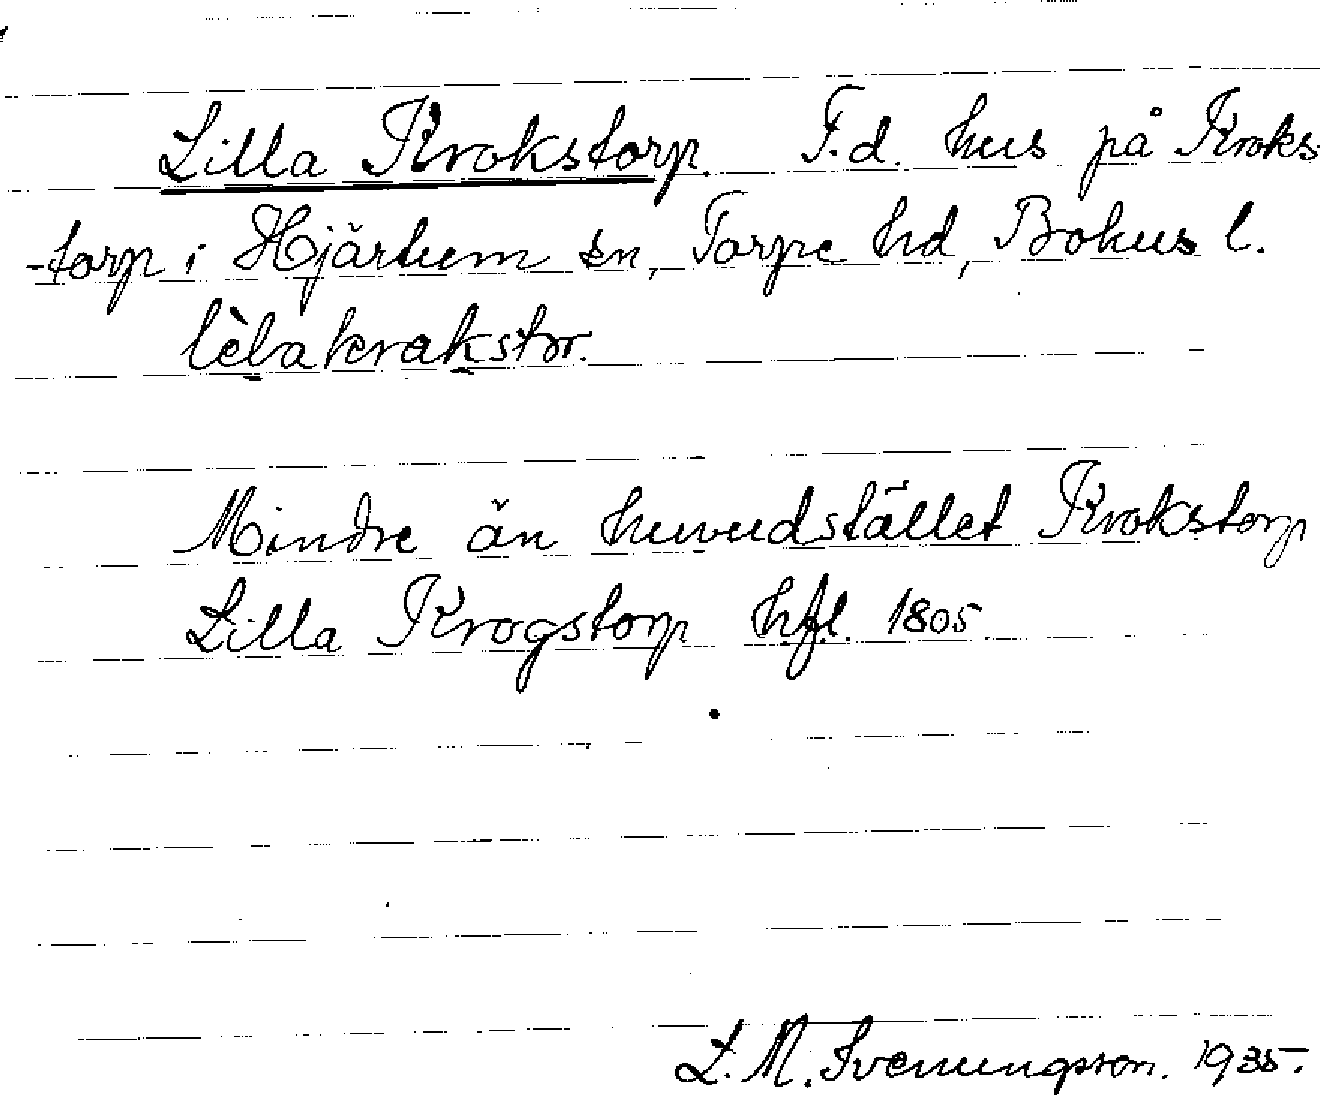 Lilla Krokstorp. F.d. hus på Kroks-
-torp i Hjärtum sn, Torpe hd, Bohus l.
lèlakrakstor.
Mindre än huvudstället Krokstorp
Lilla Krogstorp hfl. 1805
L. M. Svenungsson. 1935.